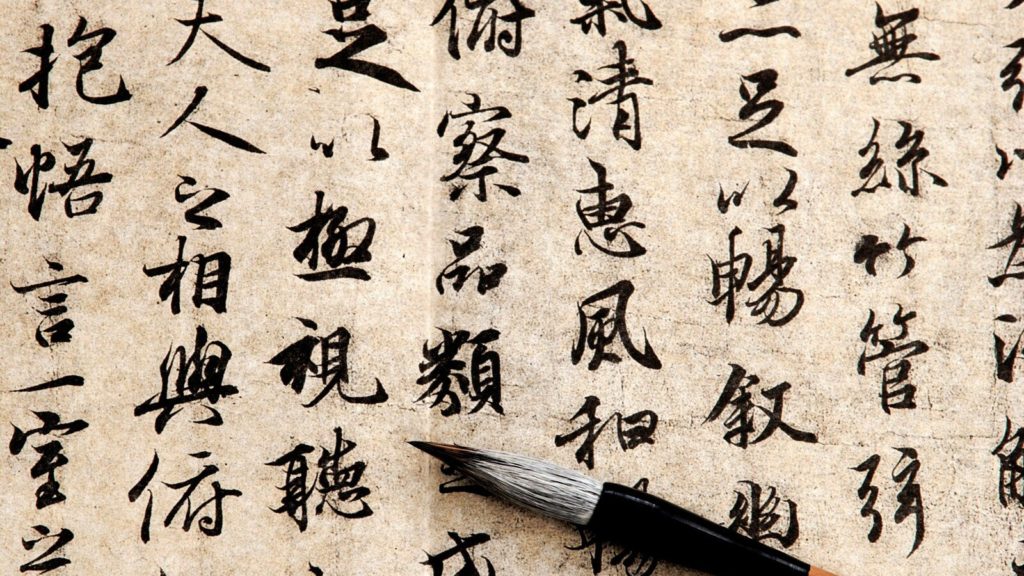 無絲竹管弦
足以暢叙幽
氣清惠風和暢
俯察品類之盛
足以極視聽
夫人之相與俯
抱悟言一室之